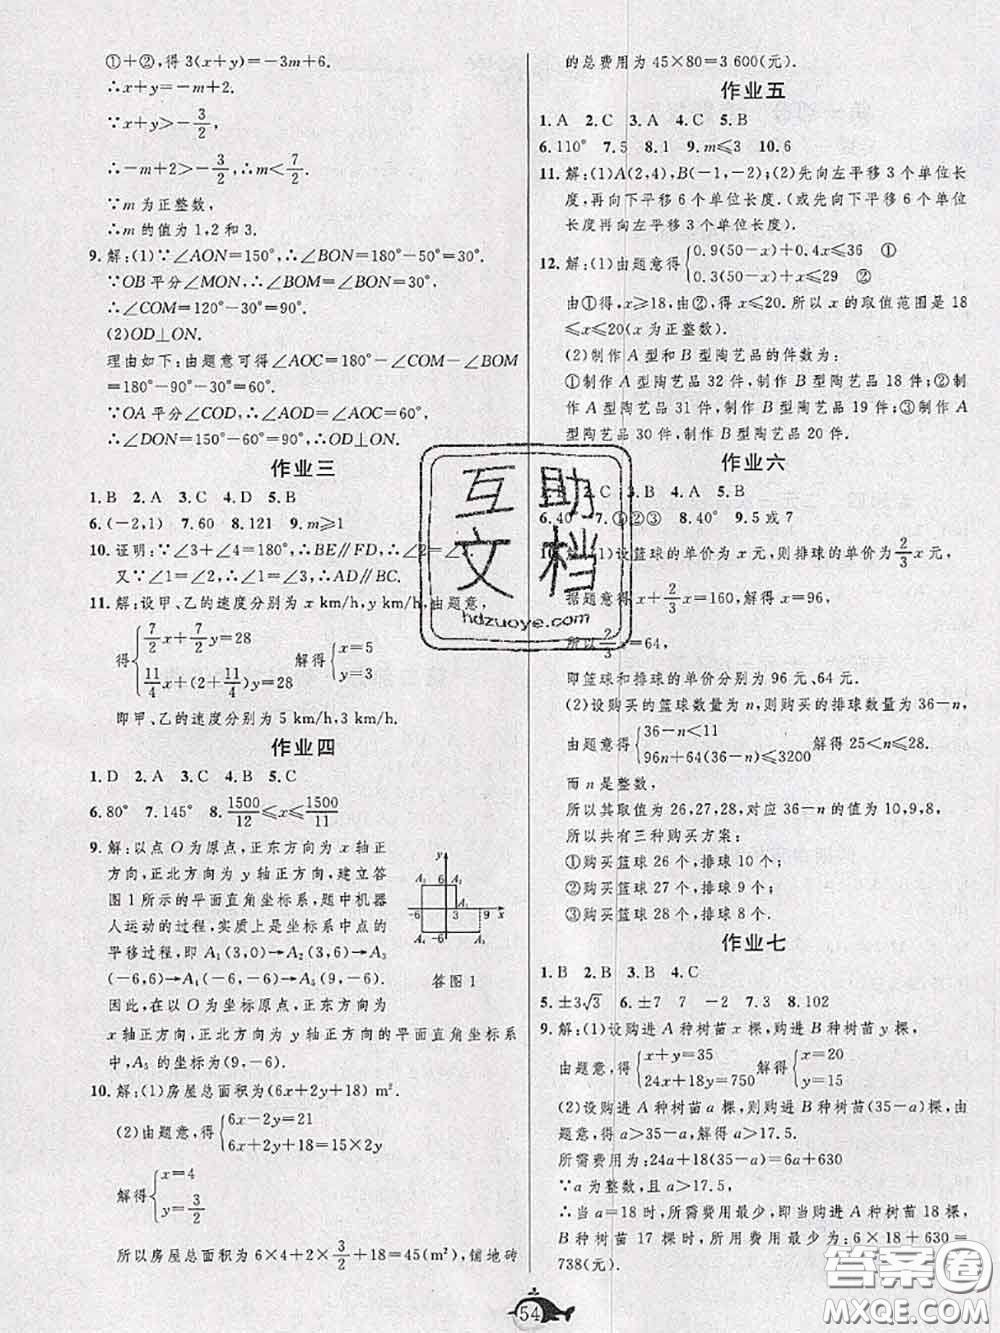 ①+②,得 3(x+y)=-3m+6.
∴x+y=-m+2.
∵x+y>-3/2,
∴-m+2>-3/2,∴m<7/2.
∵m 为正整数,
∴m 的值为 1,2 和 3.
9.解:(1)∵∠AON=150°,∴∠BON=80°-50°=30°.
∵OB 平分∠MON,∴∠BOM=∠BON=30°,
∴∠COM=120°-30°=90°.
(2)OD⊥ON.
理由如下:由题意可得∠AOC=180°-∠COM-∠BOM
=180°-90°-30°=60°.
∵OA 平分∠COD,∴∠DOA=∠AOC=60°,
∴∠DON=150°-60°=90°,∴OD⊥ON.
作业三
1.B 2.A 3.C 4.D 5.B
6.(-2,1) 7.60 8.121 9.m≥1
10.证明:∵∠3+∠4=180°,∴BE∥FD,∴∠2=∠
又∵∠1=∠2,∴∠1=∠ ∴AD∥BC.
11.解:设甲、乙的速度分别为 x km/h,y km/h.由题意,
得{7/2x+7/2y=28 11/4x+4y=28 解得{x=5 y=3
即甲、乙的速度分别为 5 km/h,3 km/h.
作业四
1.D 2.A 3.C 4.B 5.C
6.80° 7.145° 8.1500/12≤x≤1500/11
9.解:以点 O 为原点,正东方向为 x 轴正
方向,正北方向为 y 轴正方向,建立答
图 1 所示的平面直角坐标系,题中机器
人运动的过程,实质上是坐标系中点的
平移过程,即 A₁(3,0)→A₂(3,6)→A₃
(-6,6)→A₄(-6,-6)→A₅(9,-6).
因此,在以 O 为坐标原点,正东方向为
x 轴正方向,正北方向为 y 轴正方向的平面直角坐标系
中,A₅ 的坐标为(9,-6).
y
A₃ 6 A₂
A₁
-6 3 9 x
A₄ -6 A₅
答图 1
10.解:(1)房屋总面积为(6x+2y+18) m².
(2)由题意,得{6x-2y=21 6x+2y+18=15×2y
解得{x=4 y=3/2
所以房屋总面积为 6×4+2×3/2+18=45(m²),铺地砖
的总费用为 45×80=3 600(元).
作业五
1.A 2.C 3.A 4.C 5.B
6.110° 7.5 8.1 9.m≤3 10.6
11.解:(1)A(2,4),B(-1,-2);(2)先向左平移 3 个单位长
度,再向下平移 6 个单位长度.(或先向下平移 6 个单位
长度再向左平移 3 个单位长度).
12.解:(1)由题意得{0.9(50-x)+0.4x≤36 ① 0.3(50-x)+x≤29 ②
由①得,x≥18,由②得,x≤20.所以 x 的取值范围是 18
≤x≤20(x 为正整数).
(2)制作 A 型和 B 型陶艺品的件数为:
①制作 A 型陶艺品 32 件,制作 B 型陶艺品 18 件;②制
作 A 型陶艺品 31 件,制作 B 型陶艺品 19 件;③制作 A
型陶艺品 30 件,制作 B 型陶艺品 20 件.
作业六
C 3.B 4.A 5.C
6.40° 7.①②③ 8.40° 9.5 或 7
(1)设篮球的单价为 x 元,则排球的单价为2/3x 元,
据题意得 x+2/3x=160,解得 x=96,
所以2/3x=64,
即篮球和排球的单价分别为 96 元、64 元.
(2)设购买的篮球数量为 n,则购买的排球数量为 36-n,
由题意得{36-n<11 96n+64(36-n)≤3200 解得 25<n≤28.
而 n 是整数,
所以其取值为 26,27,28,对应 36-n 的值为 10,9,8,
所以共有三种购买方案:
①购买篮球 26 个,排球 10 个;
②购买篮球 27 个,排球 9 个;
③购买篮球 28 个,排球 8 个.
作业七
1.B 2.B 3.B 4.C
5.±3√3 6.±7 7 -2 7.3 8.102
9.解:(1)设购进 A 种树苗 x 棵,购进 B 种树苗 y 棵,
由题意得:{x+y=35 24x+18y=750 解得{x=20 y=15
(2)设购进 A 种树苗 a 棵,则购进 B 种树苗(35-a)棵,由
题意,得 a>35-a,解得 a>17.5.
所需费用为:24a+18(35-a)=6a+630
∵a 为整数,且 a>17.5,
∴当 a=18 时,所需费用最少,即当购进 A 种树苗 18 棵,
B 种树苗 17 棵时,所用费用最少为:6×18+630=
738(元).
54
互助
文档
hdzuoye.com
答案圈
MXQE.COM